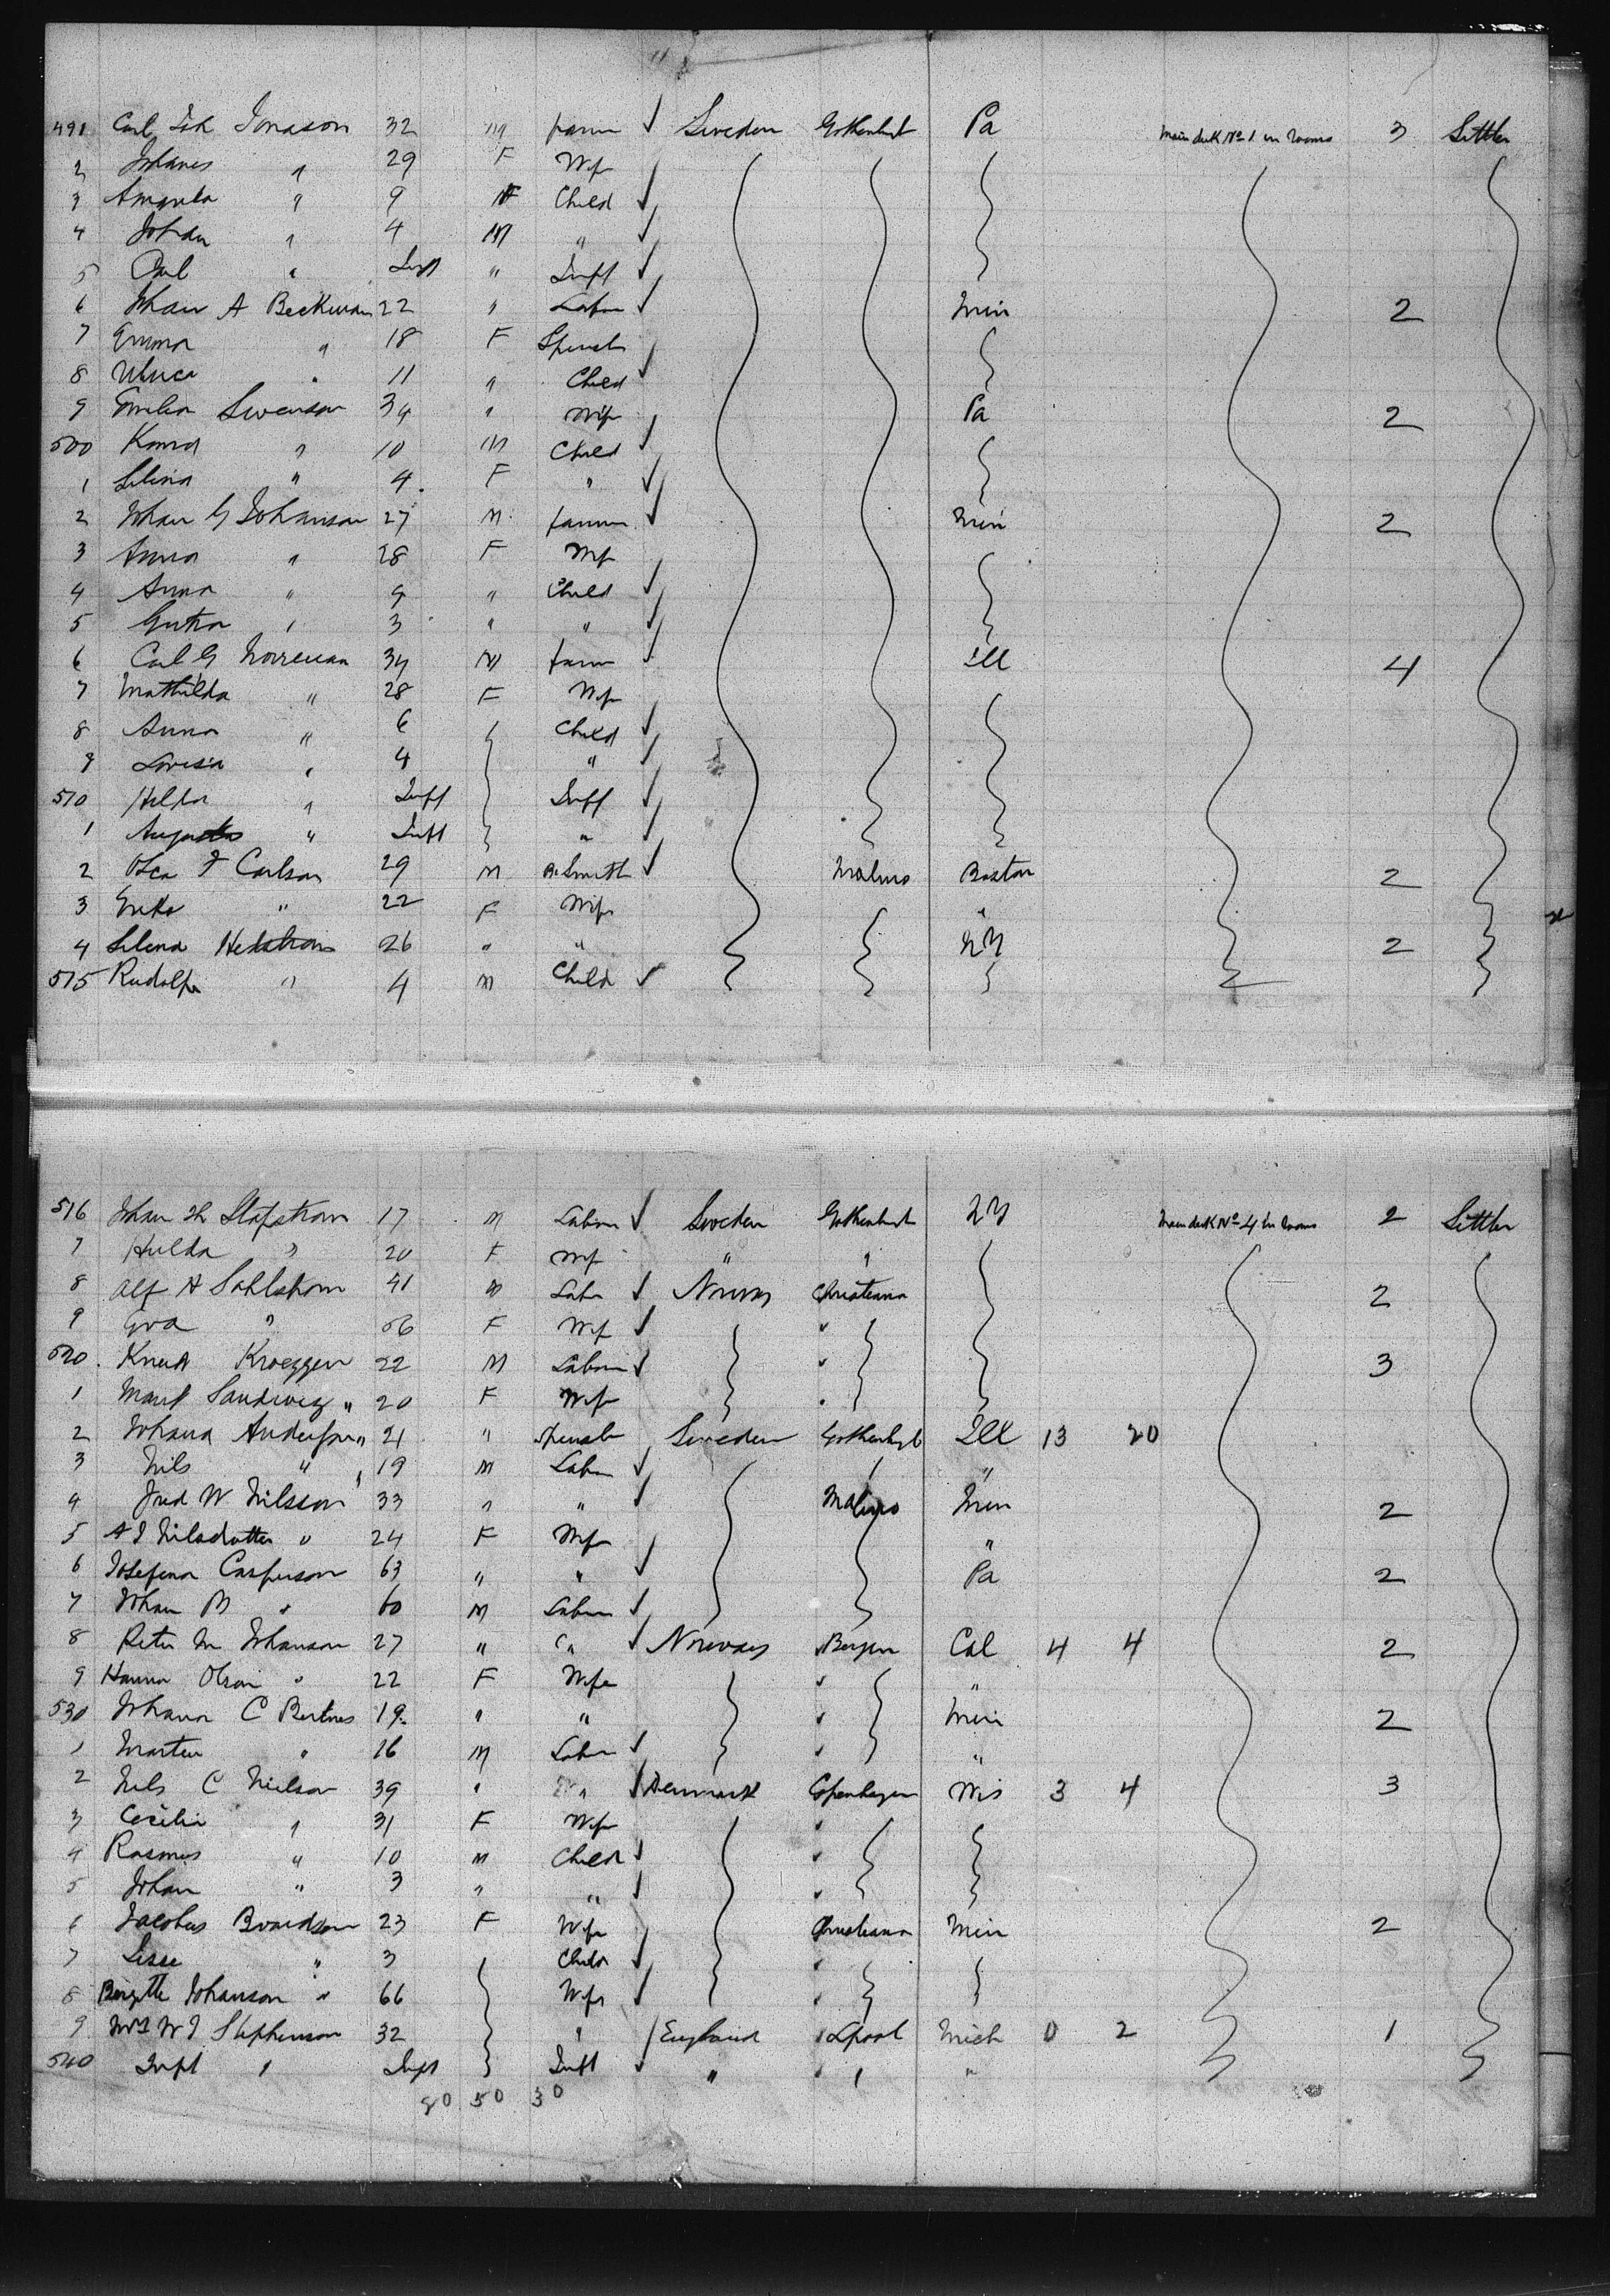 491 Carl Joh Jonason 32 M farm Sweden Gothenburg Pa Main deck No 1 in rooms 3 Settler
2 Johanes " 29 F Wife
3 Amanda " 9 F Child
4 Johan " 4 M "
5 Carl " Inft " Inft
6 Johan A Beckman 22 " Labor Min 2
7 Emma " 18 F Spinst
8 " 11 " Child
9 Emilia Swenson 34 " Wife Pa 2
500 Konrad " 10 M Child
1 Selina " 4 F "
2 Johan G Johanson 27 M farmer Min 2
3 Anna " 28 F Wife
4 Anna " 9 " Child
5 " 3 " "
6 Carl G Norreman 34 M farm Ill 4
7 Mathilda " 28 F Wife
8 Anna " 6 Child
9 Lovisa " 4 "
510 Hilda " Inft Inft
1 Augusta " Inft "
2 Oscar F Carlson 29 M Bl Smith Malmo Boston 2
3 " 22 F Wife "
4 Selena Helstrom 26 " " NY 2
515 Rudolf " 4 M Child
516 Johan Slafstrom 17 M Labor Sweden Gothenburg NY Main deck No 4 in rooms 2 Settler
7 Hulda " 20 F Wife " "
8 Alf A Sahlstrom 41 M Labr Norway Christiana 2
9 Eva " 56 F Wife "
520 Knud Kroeggen 22 M Labour " 3
1 Marit Sandwig " 20 F Wife "
2 Johana Anderson " 21 " Spinster Sweden Gothenbrg Ill 13 20
3 Nils " 19 M Labr "
4 Fred W Nilsson 33 " " Malmo Min 2
5 A J Nilsdotter " 24 F Wife "
6 Josefina Casperson 63 " " Pa 2
7 Johan M " 60 M Labour
8 Peter M Johanson 27 " " Norway Bergen Cal 4 4 2
9 Hanna Olson " 22 F Wife " "
530 Johana C Bertnes 19 " " " Min 2
1 Marten " 16 M Labr " "
2 Nils C Nielson 39 " " Denmark Copenhagen Wis 3 4 3
3 Cecilia " 31 F Wife "
4 Rasmus " 10 M Child "
5 Johan " 3 " " "
6 Jacobus 23 F Wife Christiana Min 2
7 Lisse " 3 Child "
8 Birgitte Johanson " 66 Wife "
9 Mrs W J Stephenson 32 " England Lpool Mich 0 2 1
540 Inft " Inft Inft " " "
80 50 30